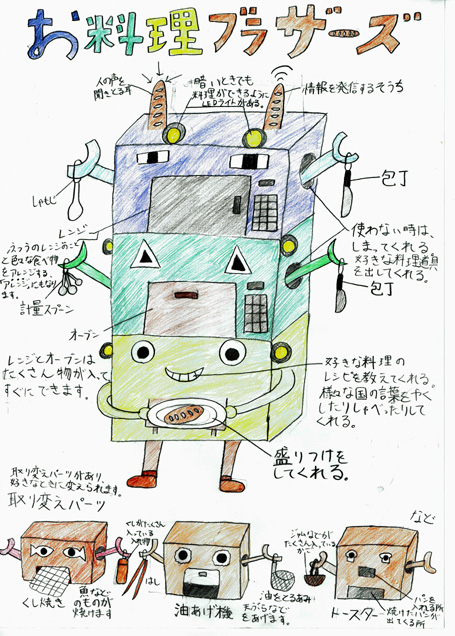 お料理ブラザーズ
人の声を
聞きとる耳
暗いときでも
料理ができるように
LEDライトがある。
情報を発信するそうち
しゃもじ
包丁
レンジ
使わない時は、
しまってくれる
好きな料理道具
を出してくれる。
ふつうのレンジのこと
と色々な食べ物
をアレンジする、
アレンジにもなり
ます。
計量スプーン
包丁
オーブン
レンジとオーブンは
たくさん物が入って
すぐにできます。
好きな料理の
レシピを教えてくれる。
様々な国の言葉をやく
したりしゃべったりして
くれる。
盛りつけを
してくれる。
取り変えパーツがあり、
好きなときに変えられます。
取り変えパーツ
など
くしがたくさん
入っている
入れ物
はし
くし焼き
魚など
のものが
焼けます
油あげ機
油をとるあみ
天ぷらなど
をあげます。
ジャムなどが
たくさん入っている
かご
トースター
パンを
入れる所
焼けたパンが
出てくる所